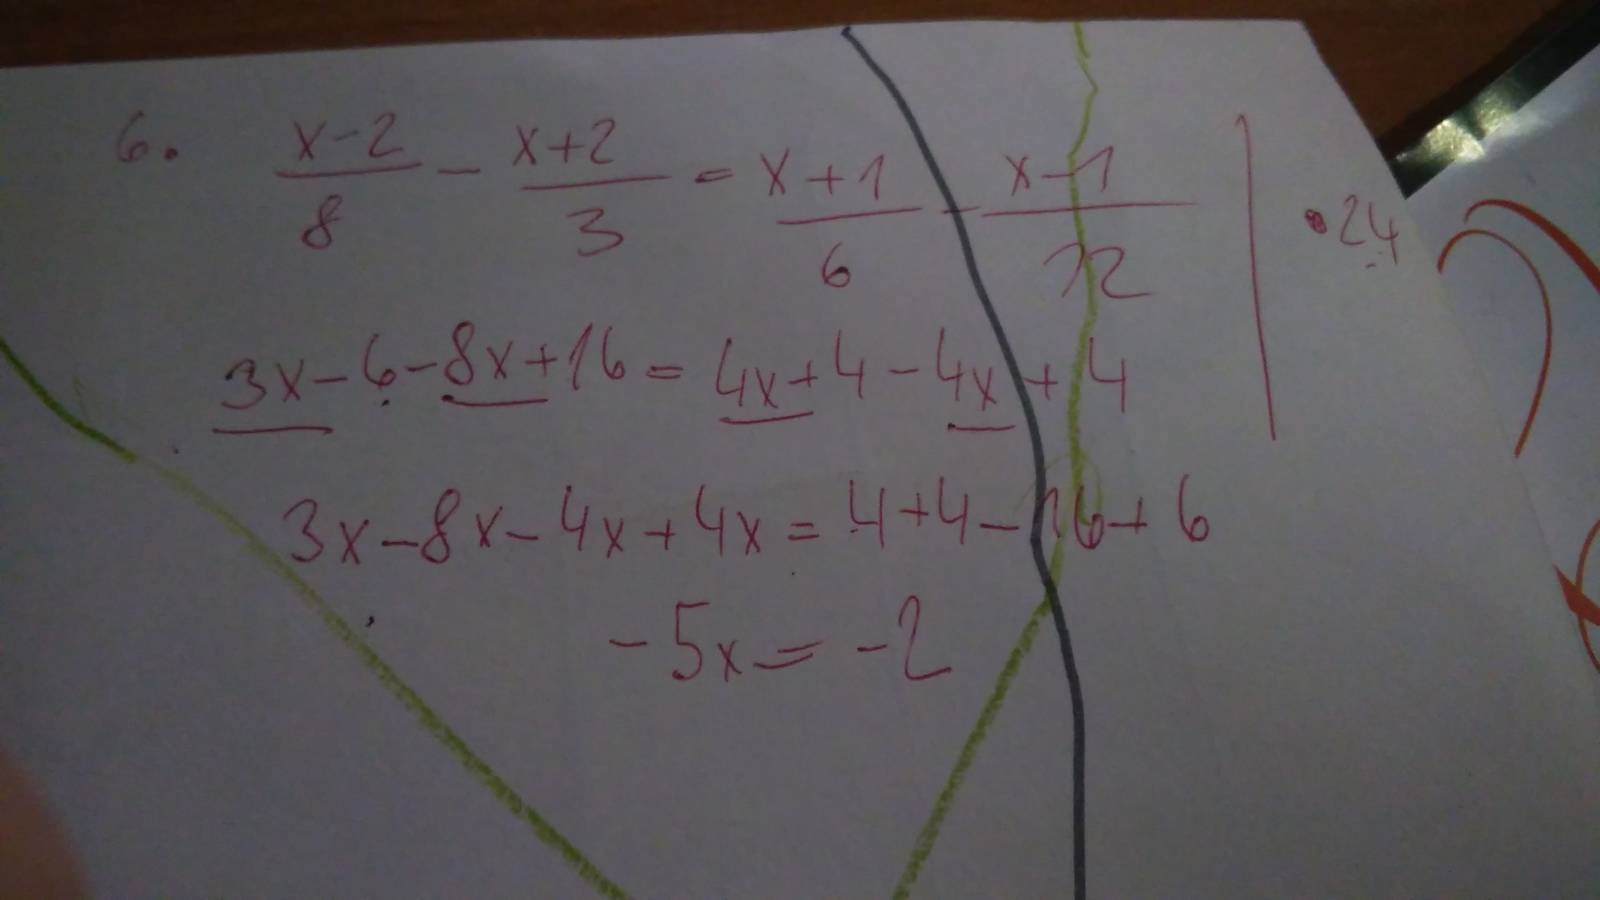 6. (x-2)/8 - (x+2)/3 = (x+1)/6 - (x-1)/12 | • 24
3x - 6 - 8x + 16 = 4x + 4 - 4x + 4
3x - 8x - 4x + 4x = 4 + 4 - 16 + 6
-5x = -2